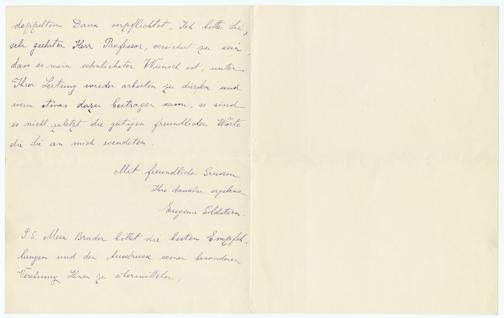 doppeltem Dank verpflichtet. Ich bitte Sie,
sehr geehrter Herr Professor, versichert zu sein,
dass es mein sehnlichster Wunsch ist, unter
Ihrer Leitung wieder arbeiten zu dürfen und
wenn etwas dazu beitragen kann, so sind
es nicht zuletzt die gütigen freundlichen Worte
die Sie an mich wendeten.
Mit freundlichen Grüssen
Ihre dankbar ergebene
Eugenie Goldstern.
P.S. Mein Bruder bittet die besten Empfeh-
lungen und den Ausdruck seiner besonderen
Verehrung Ihnen zu übermitteln.